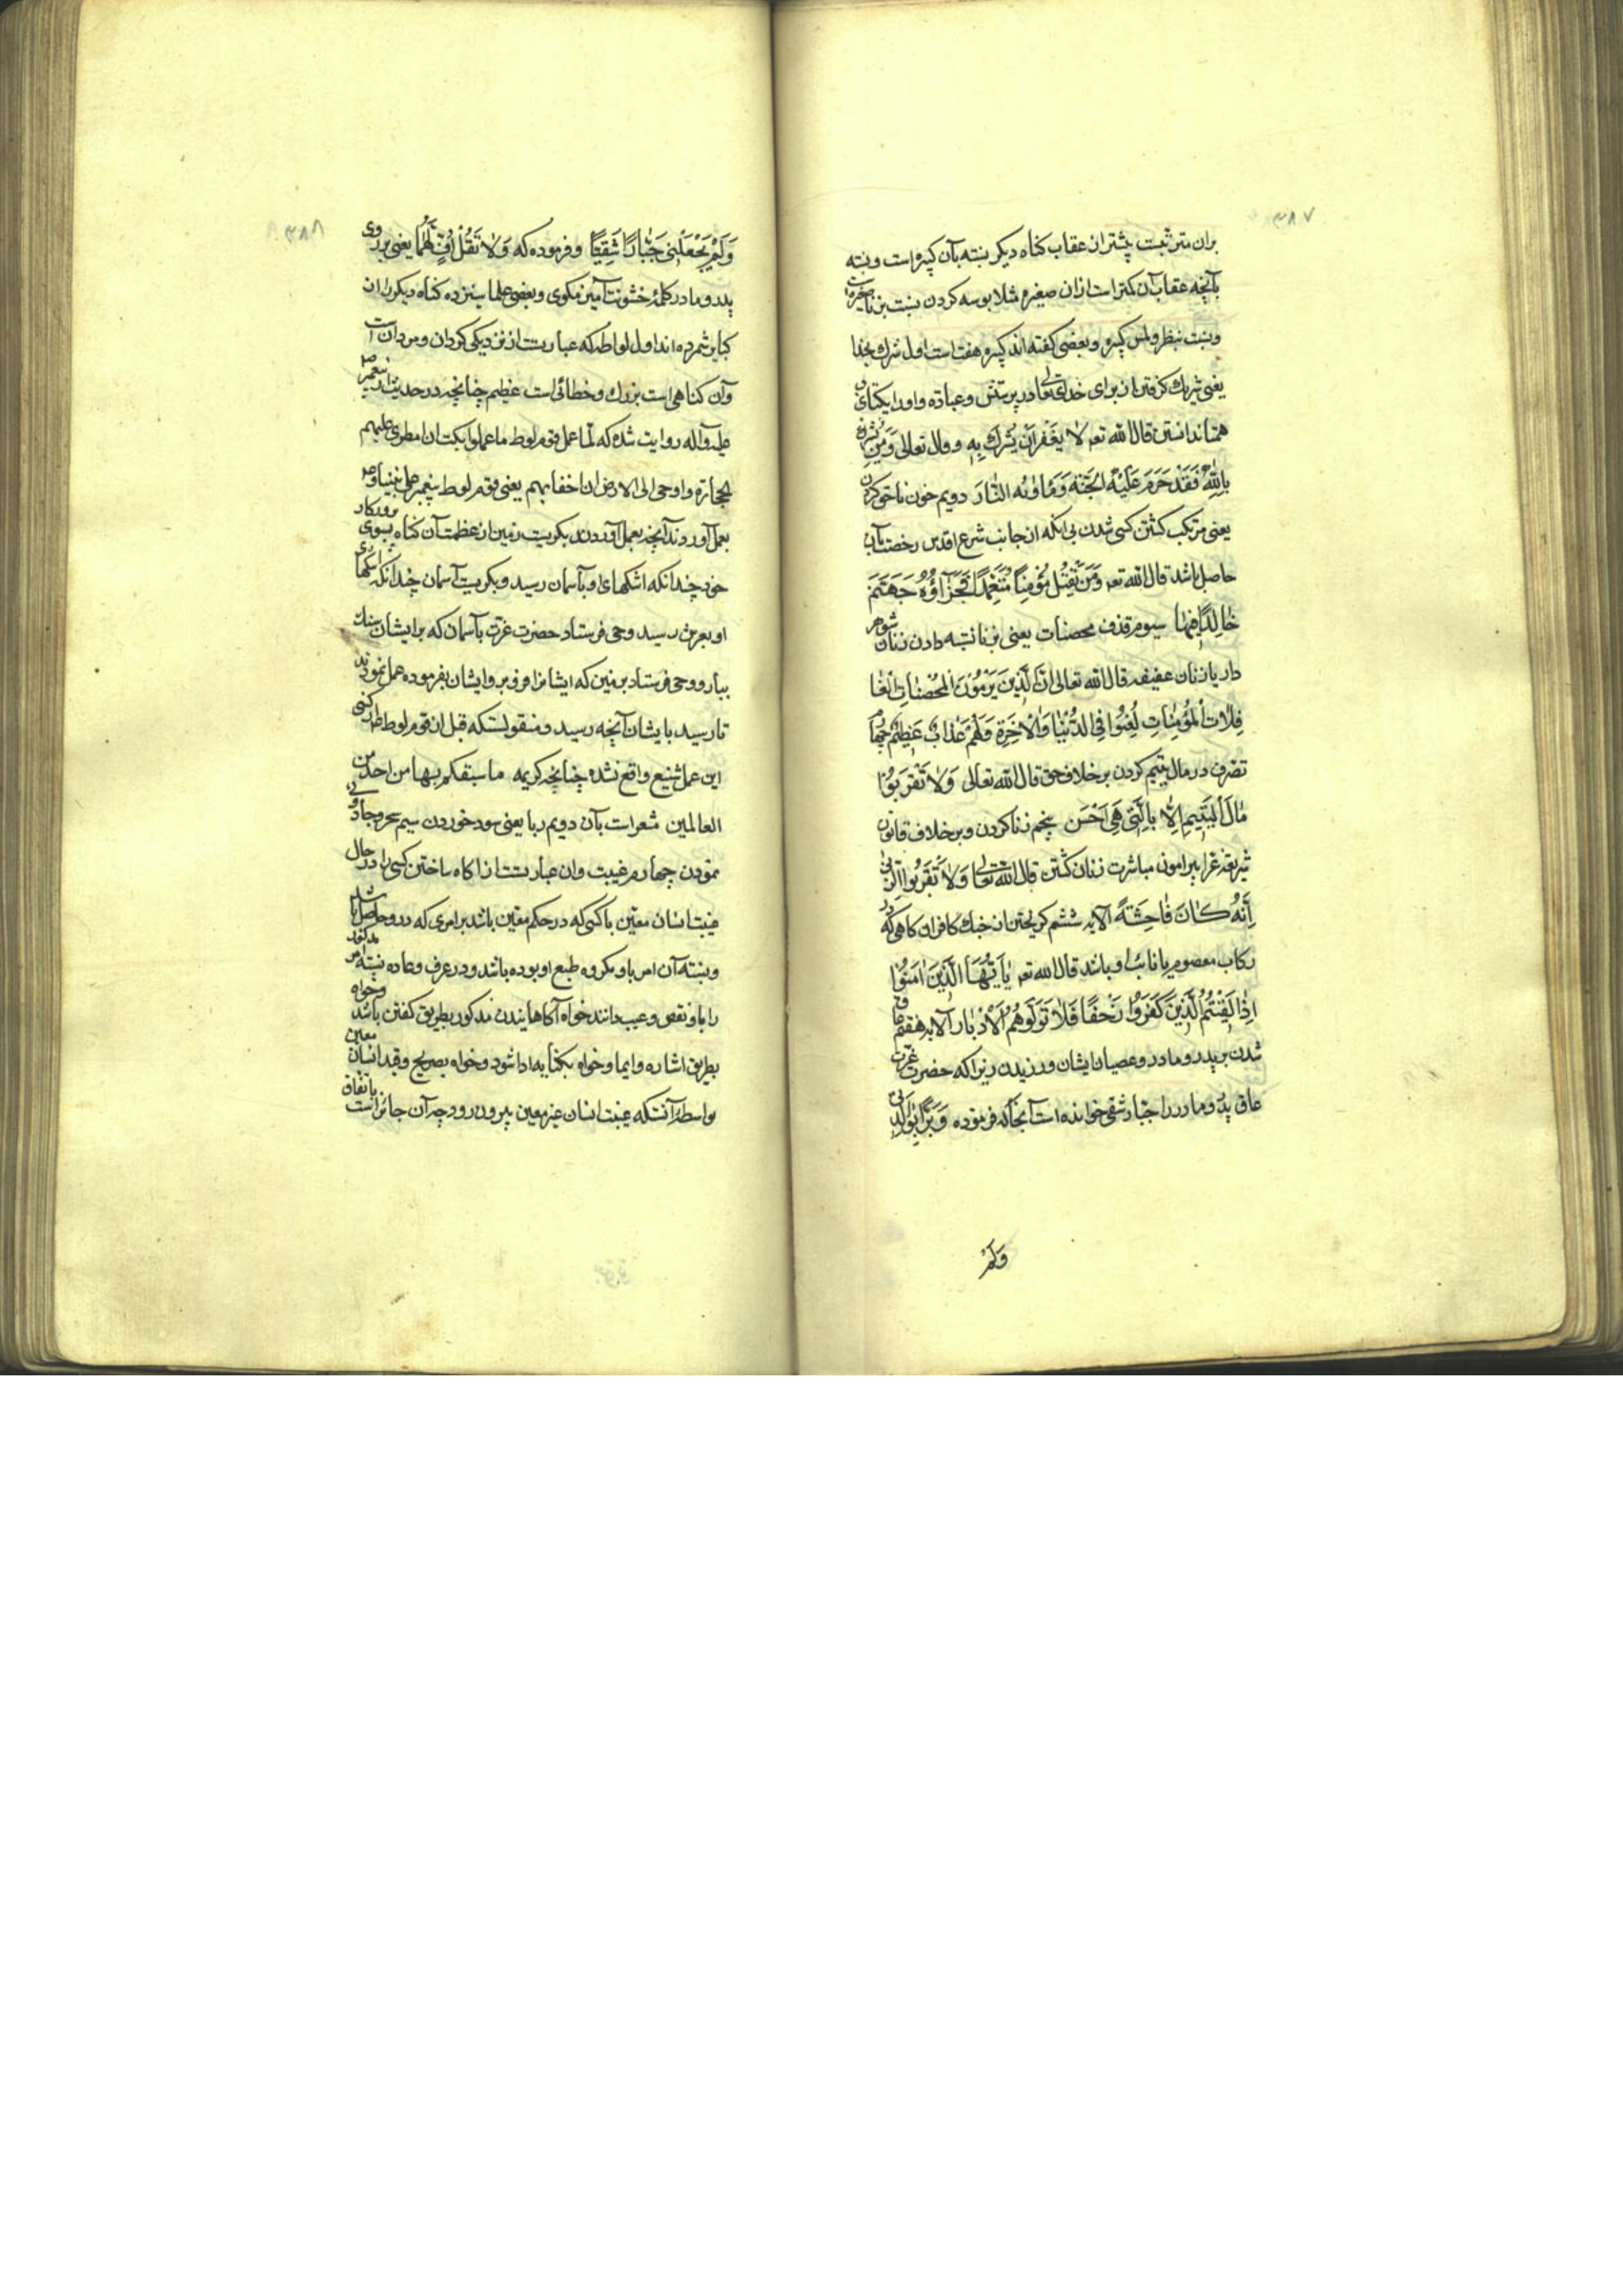 ۳۸۷
بران مترتبست پیشتر از عقاب کناه دیکر بنسبته بآن کبیره است و بنسبته
بآنچه عقاب آن کمتر است ازان صغیره مثلا بوسه کردن بنسبت بزنا صغیره است
و بنسبت بنظر و لمس کبیره و بعضی کفته اند کبیره هفت است اول شرك بخدا
یعنی شریك کرفتن از برای خدای تعالی در پرستش و عباده و او را یکتای بی
همتا ندانستن قال الله تعه لا یغفر ان یشرك به و قال تعالی وَمَن یشرك
بِاللهِ فَقَدْ حَرَّمَ عَلَیْهِ الجَنَّةَ وَمَاوٰیهُ النَّارَ دویم خون ناحق کردن
یعنی مرتکب کشتن کسی شدن بی انکه از جانب شرع اقدس رخصت بآن
حاصل باشد قال الله تعه وَمَنْ یَقْتُلْ مُؤْمِنًا مُتَعَمِّدًا فَجَزَآؤُهُ جَهَنَّمَ
خٰالِدًا فِیهٰا سیوم قذف محصنات یعنی بزنا نسبه دادن زنان شوهر
دار یا زنان عفیفه قال الله تعالی اِنَّ الَّذِینَ یَرْمُونَ المُحْصَنٰاتِ الْغٰا
فِلاٰتِ الْمُؤْمِنٰاتِ لُعِنُوا فِی الدُّنْیٰا وَالْاٰخِرَةِ وَلَهُمْ عَذٰابٌ عَظِیمٌ چهارم
تصرف در مال یتیم کردن بر خلاف حق قال الله تعالی وَلاٰ تَقْرَبُوا
مٰالَ الْیَتِیمِ اِلاّٰ بِالَّتِی هِیَ اَحْسَن پنجم زنا کردن و بر خلاف قانون
شریعة غرا پیرامون مباشرت زنان کشتن قال الله تعالی وَلاٰ تَقْرَبُوا الزِّنٰی
اِنَّهُ کٰانَ فٰاحِشَةً الآیه ششم کریختن از جنك کافران کاهی که در
رکاب معصوم یا نائب او باشد قال الله تعه یٰا اَیُّهَا الَّذِینَ اٰمَنُوا
اِذٰا لَقِیتُمُ الَّذِینَ کَفَرُوا زَحْفًا فَلاٰ تُوَلُّوهُمُ الْاَدْبٰارَ الآیه هفتم عاق
شدن بر پدر و مادر و عصیان ایشان ورزیدن زیرا که حضرت عزت
عاق پدر و مادر را جبار شقی خوانده است آنجا که فرموده وَبَرًّا بِوٰالِدَتِی
وَلَمْ
۳۸۸
وَلَمْ یَجْعَلْنِی جَبّٰارًا شَقِیًّا و فرموده که وَلاٰ تَقُلْ لَهُمٰا اُفٍّ یعنی بر روی
پدر و مادر کلمۀ خشونت آمیز مکوی و بعضی علما سیزده کناه دیکر را از
کبایر شمرده اند اول لواطه که عبارتست از نزدیکی کردن و مردان است
وآن کناهی است بزرك و خطائی است عظیم چنانچه در حدیث از پیغمبر صلی الله
علیه وآله روایت شده که لمّا عمل قوم لوط ما عملوا بکت ان امطری علیهم
الحجارة و اوحی الی الارض ان اخف بهم یعنی قوم لوط پیغمبر علی نبینا و
بعمل آوردند آنچه بعمل آوردند بکریست زمین از عظمت آن کناه بسوی پروردکار
خود چندانکه اشکهای او بآسمان رسید و بکریست آسمان چندانکه اشکهای
او بعرش رسید وحی فرستاد حضرت عزت بآسمان که بر ایشان سنك
ببار و وحی فرستاد بزمین که ایشان را فرو بر و ایشان بفرموده عمل نمودند
تا رسید بایشان آنچه رسید و منقولستکه قبل از قوم لوط از کسی
این عمل شنیع واقع نشده چنانچه کریمه ما سبقکم بها من احد من
العالمین مشعر است بآن دویم ربا یعنی سود خوردن سیم سحر و جادو
نمودن چهارم غیبت وان عبارتست از اکاه ساختن کسی را در حال
غیبت انسان معیّن با کسی که در حکم معیّن باشد بر امری که در و حاصل باشد
و نسبته آن امر باو مکروه طبع او بوده باشد و در عرف و عاده نسبته
را باو نقص و عیب دانند خواه آکاهانیدن مذکور بطریق کفتن باشد و خواه
بطریق اشاره و ایما و خواه بکنایه ادا شود و خواه بصریح و قید انسان معیّن
بواسطۀ آنستکه غیبت انسان غیر معین بیرون رود چه آن جائز است باتفاق